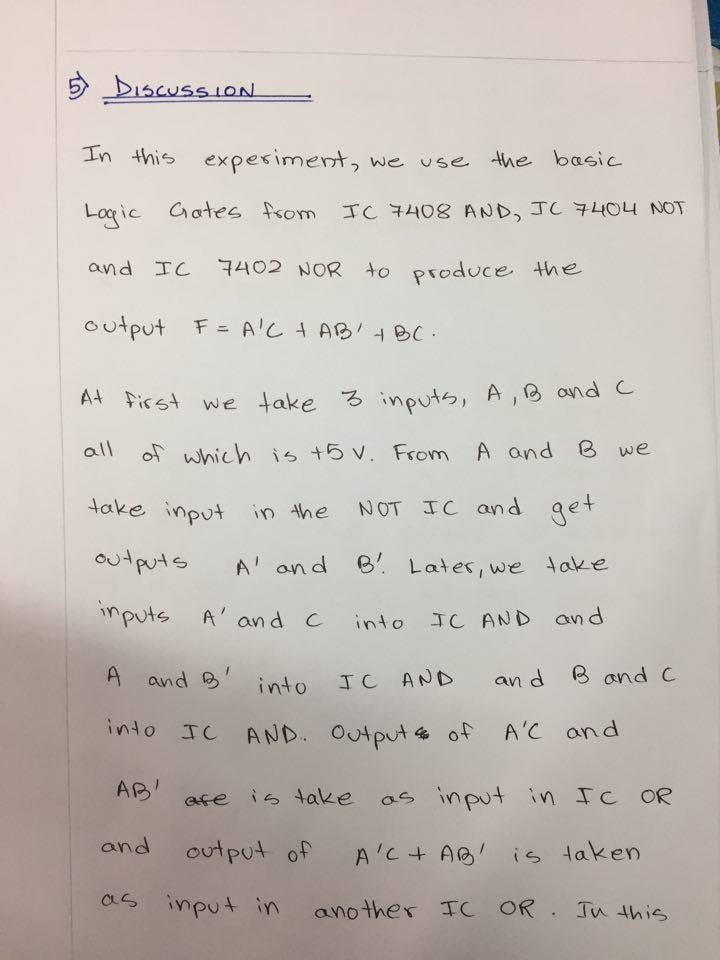 5) DISCUSSION
In this experiment, we use the basic
Logic Gates from IC 7408 AND, IC 7404 NOT
and IC 7402 NOR to produce the
output F = A'C + AB' + BC.
At first we take 3 inputs, A, B and C
all of which is +5 V. From A and B we
take input in the NOT IC and get
outputs A' and B'. Later, we take
inputs A' and C into IC AND and
A and B' into IC AND and B and C
into IC AND. Output of A'C and
AB' are is take as input in IC OR
and output of A'C + AB' is taken
as input in another IC OR. In this